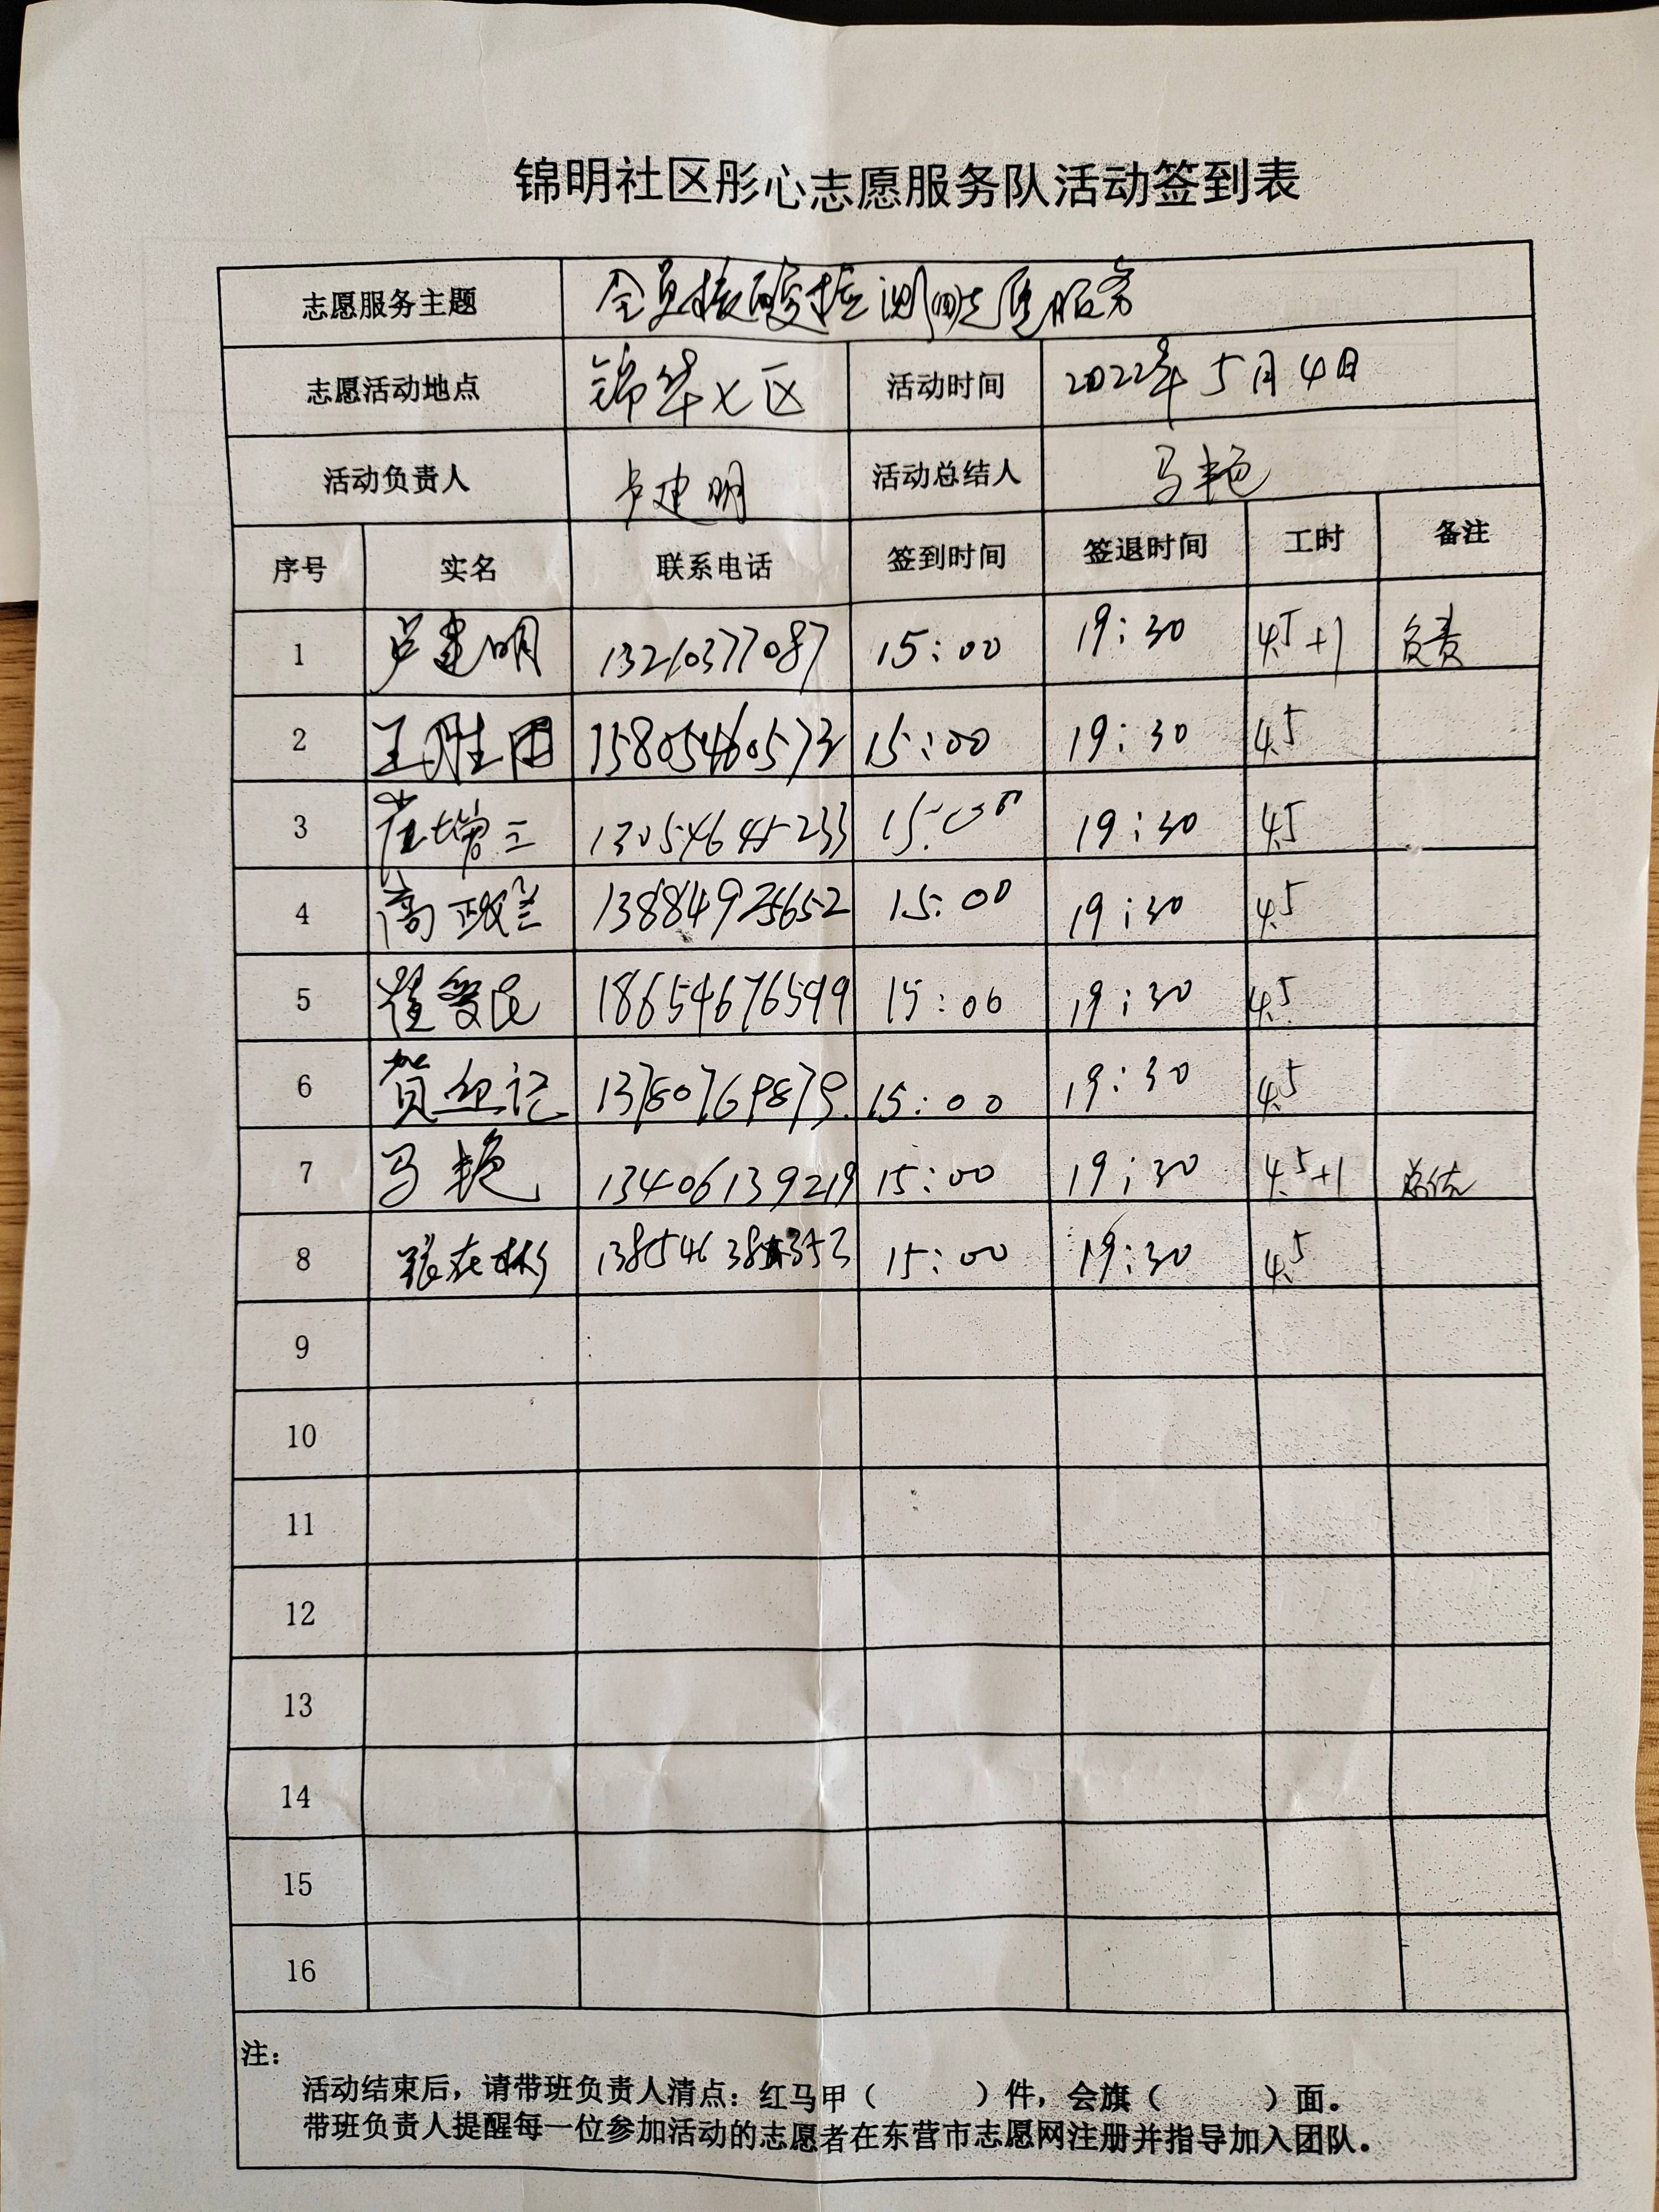 锦明社区彤心志愿服务队活动签到表
志愿服务主题 全员核酸检测志愿服务
志愿活动地点 锦华七区 活动时间 2022年5月4日
活动负责人 卢建明 活动总结人 马艳
序号 实名 联系电话 签到时间 签退时间 工时 备注
1 卢建明 13210377087 15:00 19:30 4.5+1 负责
2 王胜田 15805460573 15:00 19:30 4.5
3 崔增三 13054645233 15:00 19:30 4.5
4 高政兰 13884925652 15:00 19:30 4.5
5 崔爱民 18654676599 15:00 19:30 4.5
6 贺 记 15:00 19:30 4.5
7 马艳 13406139219 15:00 19:30 4.5+1 总结
8 张在彬 15:00 19:30 4.5
9
10
11
12
13
14
15
16
注：
活动结束后，请带班负责人清点：红马甲（ ）件，会旗（ ）面。
带班负责人提醒每一位参加活动的志愿者在东营市志愿网注册并指导加入团队。